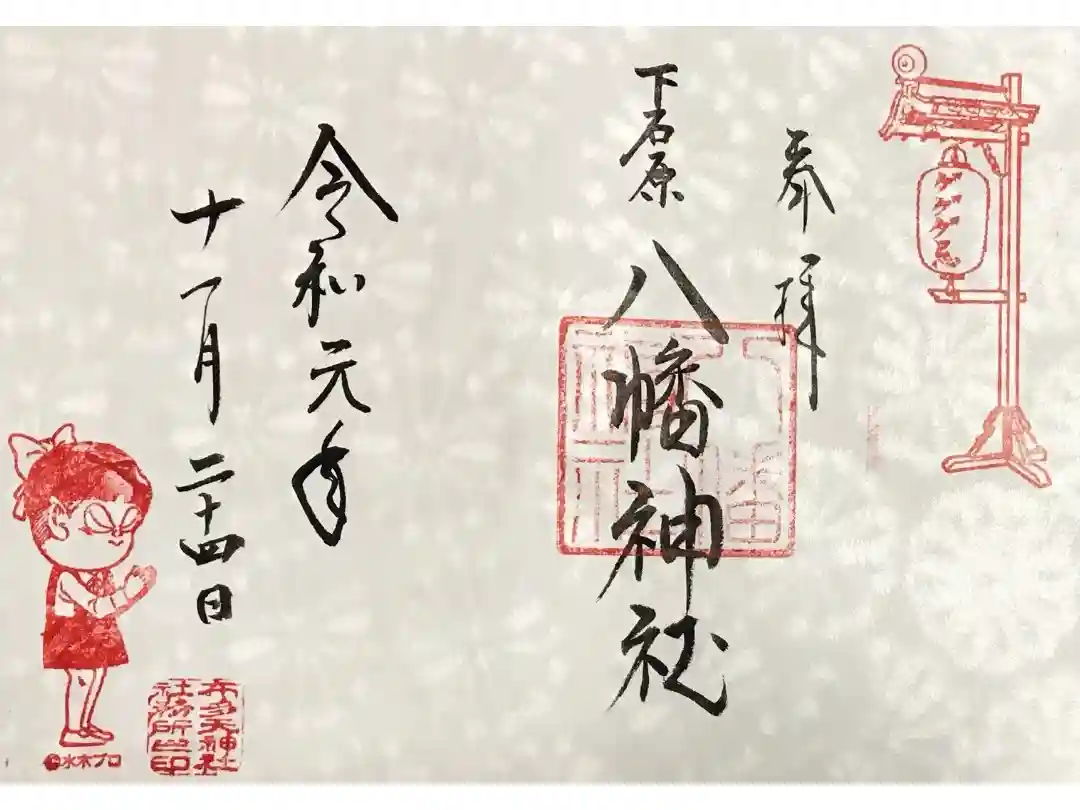 ゲゲゲ忌
奉拝
下石原
八幡神社
令和元年
十一月二十四日
布多天神社
社務所之印
©水木プロ